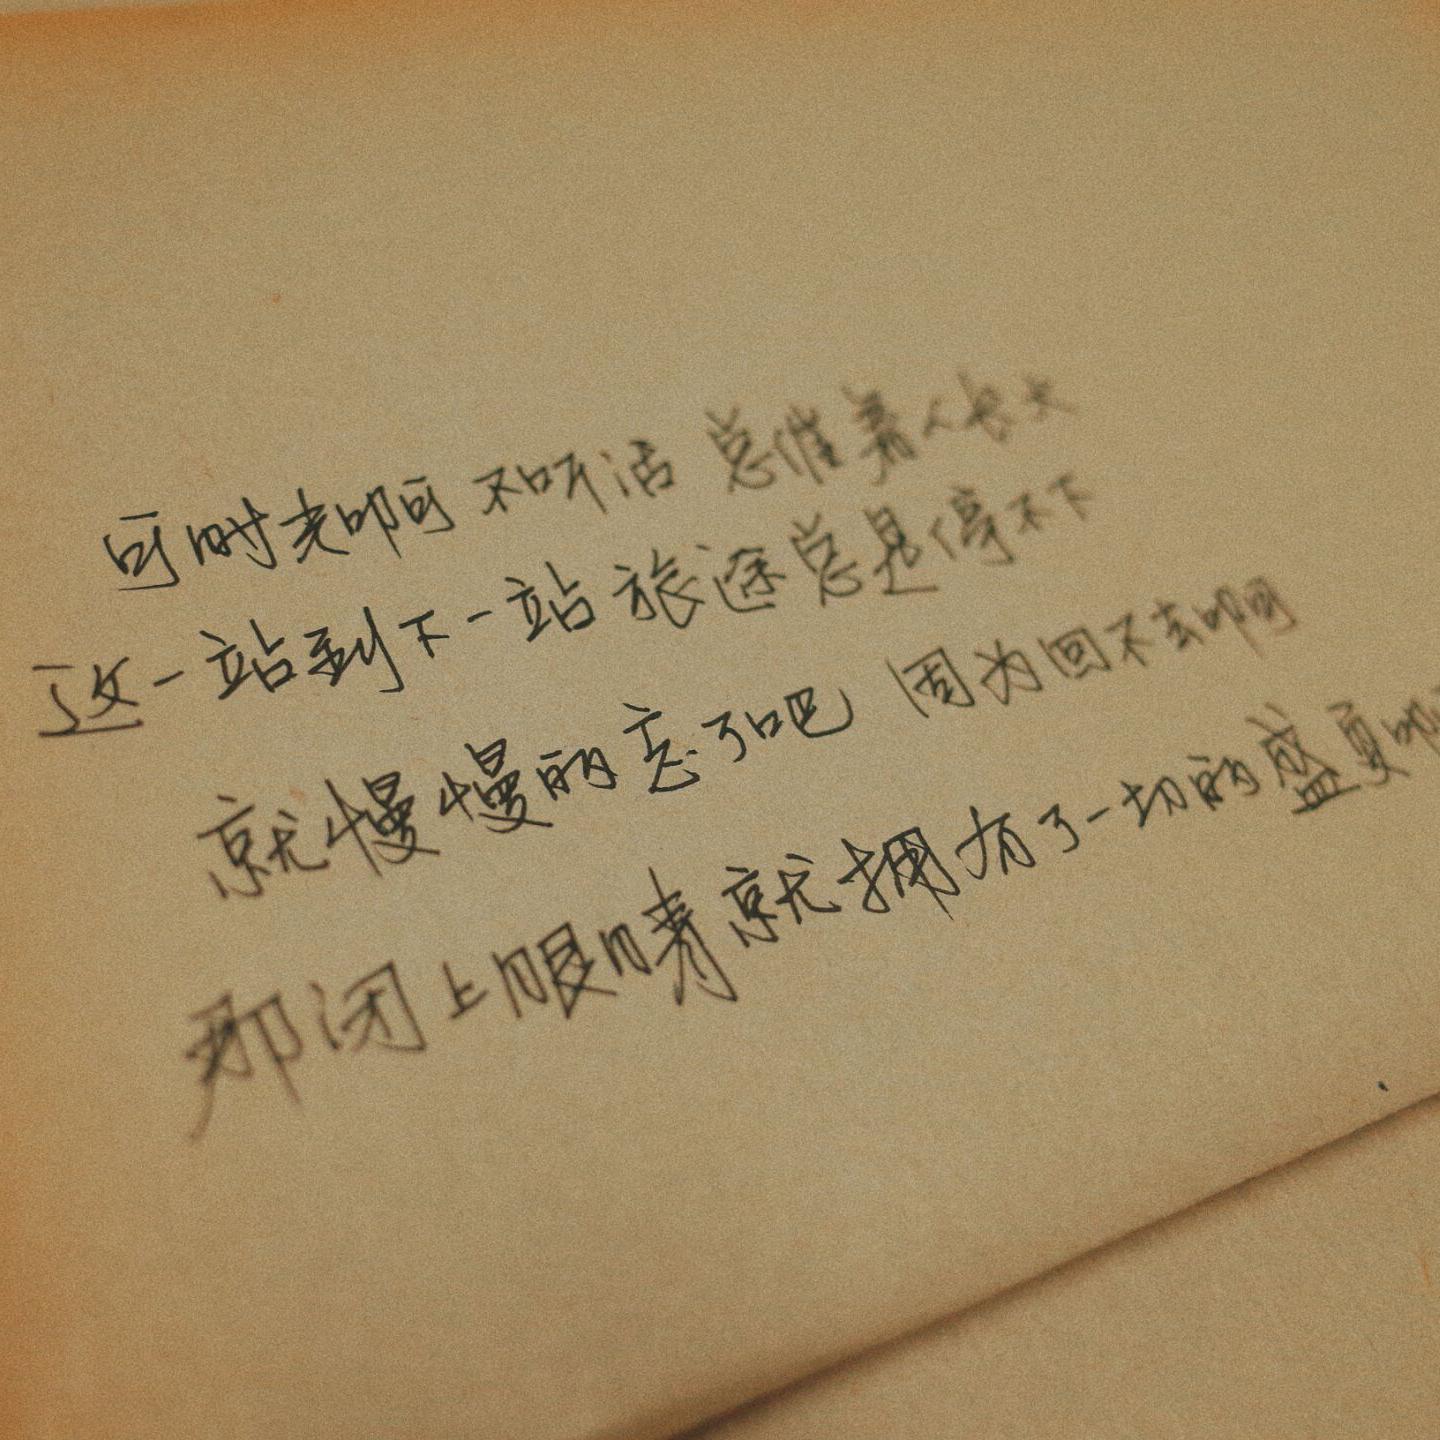 可时光啊 不听话 总催着人长大
这一站到下一站 旅途总是停不下
就慢慢的忘了吧 因为回不去啊
那闭上眼睛就拥有了一切的盛夏